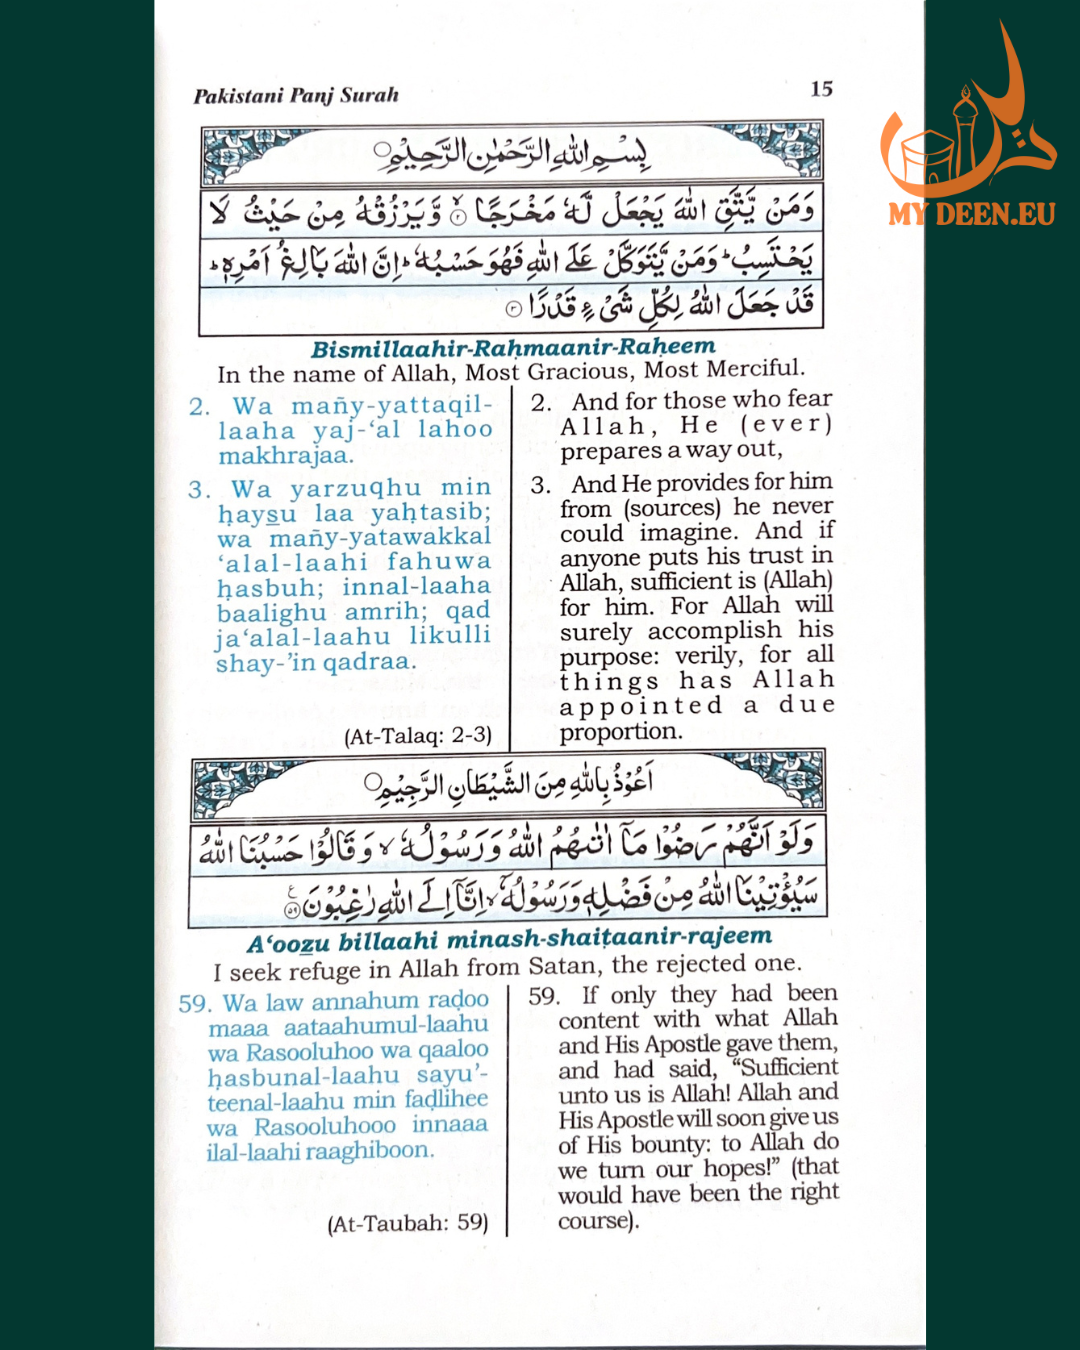 Pakistani Panj Surah
15
MY DEEN.EU
بِسْمِ اللهِ الرَّحْمٰنِ الرَّحِيْمِ
وَمَنْ يَّتَّقِ اللهَ يَجْعَلْ لَّهٗ مَخْرَجًا ۙ﴿۲﴾ وَّيَرْزُقْهُ مِنْ حَيْثُ لَا
يَحْتَسِبُ ؕ وَمَنْ يَّتَوَكَّلْ عَلَى اللهِ فَهُوَ حَسْبُهٗ ؕ اِنَّ اللهَ بَالِغُ اَمْرِهٖ ؕ
قَدْ جَعَلَ اللهُ لِكُلِّ شَىْءٍ قَدْرًا ﴿۳﴾
Bismillaahir-Raḥmaanir-Raḥeem
In the name of Allah, Most Gracious, Most Merciful.
2. Wa mañy-yattaqil-
laaha yaj-‘al lahoo
makhrajaa.
3. Wa yarzuqhu min
ḥays̱u laa yaḥtasib;
wa mañy-yatawakkal
‘alal-laahi fahuwa
ḥasbuh; innal-laaha
baalighu amrih; qad
ja‘alal-laahu likulli
shay-’in qadraa.
(At-Talaq: 2-3)
2. And for those who fear
Allah, He (ever)
prepares a way out,
3. And He provides for him
from (sources) he never
could imagine. And if
anyone puts his trust in
Allah, sufficient is (Allah)
for him. For Allah will
surely accomplish his
purpose: verily, for all
things has Allah
appointed a due
proportion.
اَعُوْذُ بِاللهِ مِنَ الشَّيْطَانِ الرَّجِيْمِ
وَلَوْ اَنَّهُمْ رَضُوْا مَآ اٰتٰىهُمُ اللهُ وَرَسُوْلُهٗ ۙ وَقَالُوْا حَسْبُنَا اللهُ
سَيُؤْتِيْنَا اللهُ مِنْ فَضْلِهٖ وَرَسُوْلُهٗۤ ۙ اِنَّآ اِلَى اللهِ رٰغِبُوْنَ ﴿۵۹﴾ ع
A‘ooẕu billaahi minash-shaiṭaanir-rajeem
I seek refuge in Allah from Satan, the rejected one.
59. Wa law annahum raḍoo
maaa aataahumul-laahu
wa Rasooluhoo wa qaaloo
ḥasbunal-laahu sayu’-
teenal-laahu min faḍlihee
wa Rasooluhooo innaaa
ilal-laahi raaghiboon.
(At-Taubah: 59)
59. If only they had been
content with what Allah
and His Apostle gave them,
and had said, “Sufficient
unto us is Allah! Allah and
His Apostle will soon give us
of His bounty: to Allah do
we turn our hopes!” (that
would have been the right
course).